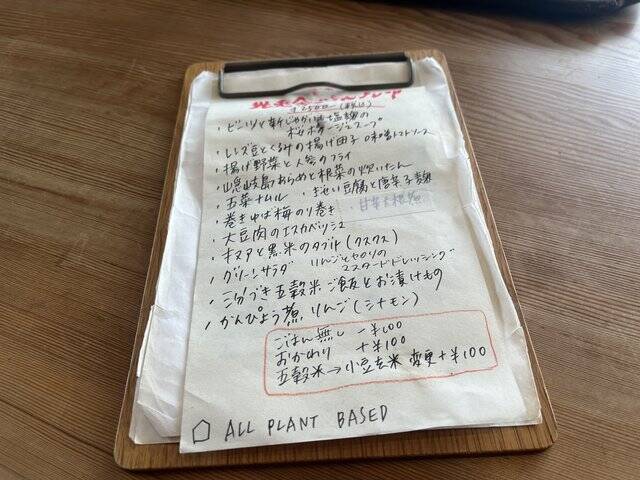 ・ビーツと新じゃが 塩麹の
桜ポタージュスープ。
・レンズ豆とくるみの揚げ団子 味噌トマトソース
・揚げ野菜と人参のフライ
・隠岐島あらめと根菜の炊いたん
・五菜ナムル ・きせい豆腐と唐辛子麹
・巻き中は梅のり巻き
・大豆肉のエスカベッシュ
・キヌアと黒米のタブレ(クスクス)
・グリーンサラダ りんごとセロリの
マスタードドレッシング
・三分づき五穀米ご飯とお漬けもの
・かんぴょう煮 りんご(シナモン)
ごはん無し -¥100
おかわり +¥100
五穀米→小豆玄米 変更+¥100
ALL PLANT BASED